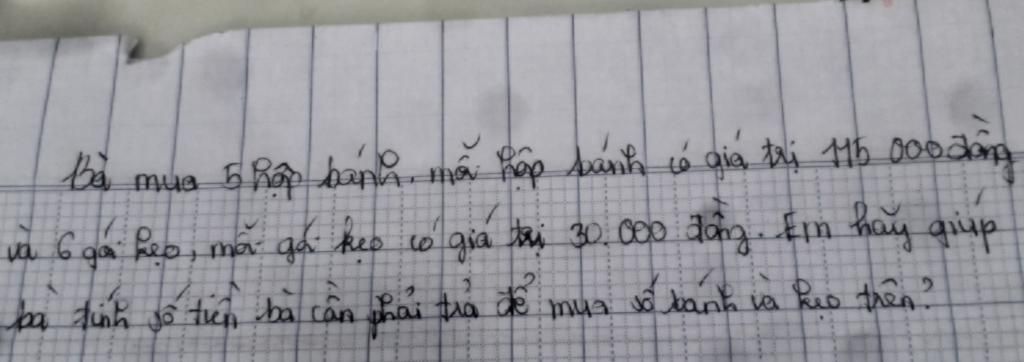 Bà mua 5 hộp bánh, mỗ hộp bánh có giá trị 115 000 đồng
và 6 gá kẹo, mỗ gá kẹo có giá trị 30.000 đồng. Em hãy giúp
bà tính số tiền bà cần phải trả để mua số bánh và kẹo trên?